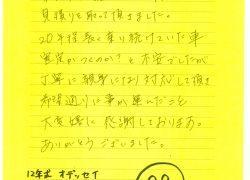 見積りを取って頂きました。
20年程長く乗り続けていた車
査定がつくのか？と不安でしたが
丁寧に親身になり対応して頂き
希望通りに事が運んだこと
大変嬉しく感謝しております。
ありがとうございました。
12年式 オデッセイ